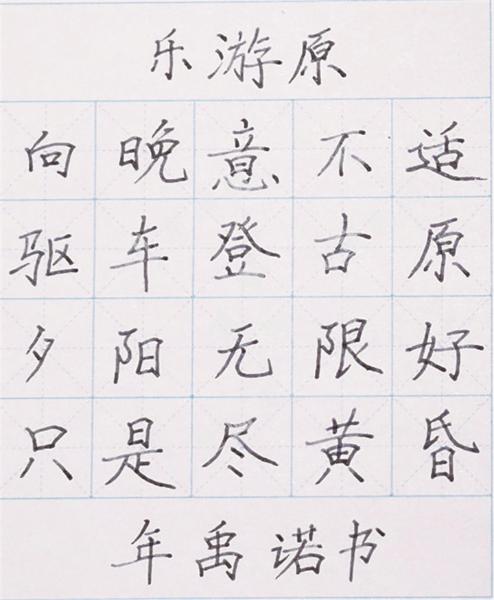 乐游原
向晚意不适
驱车登古原
夕阳无限好
只是尽黄昏
年禹诺书